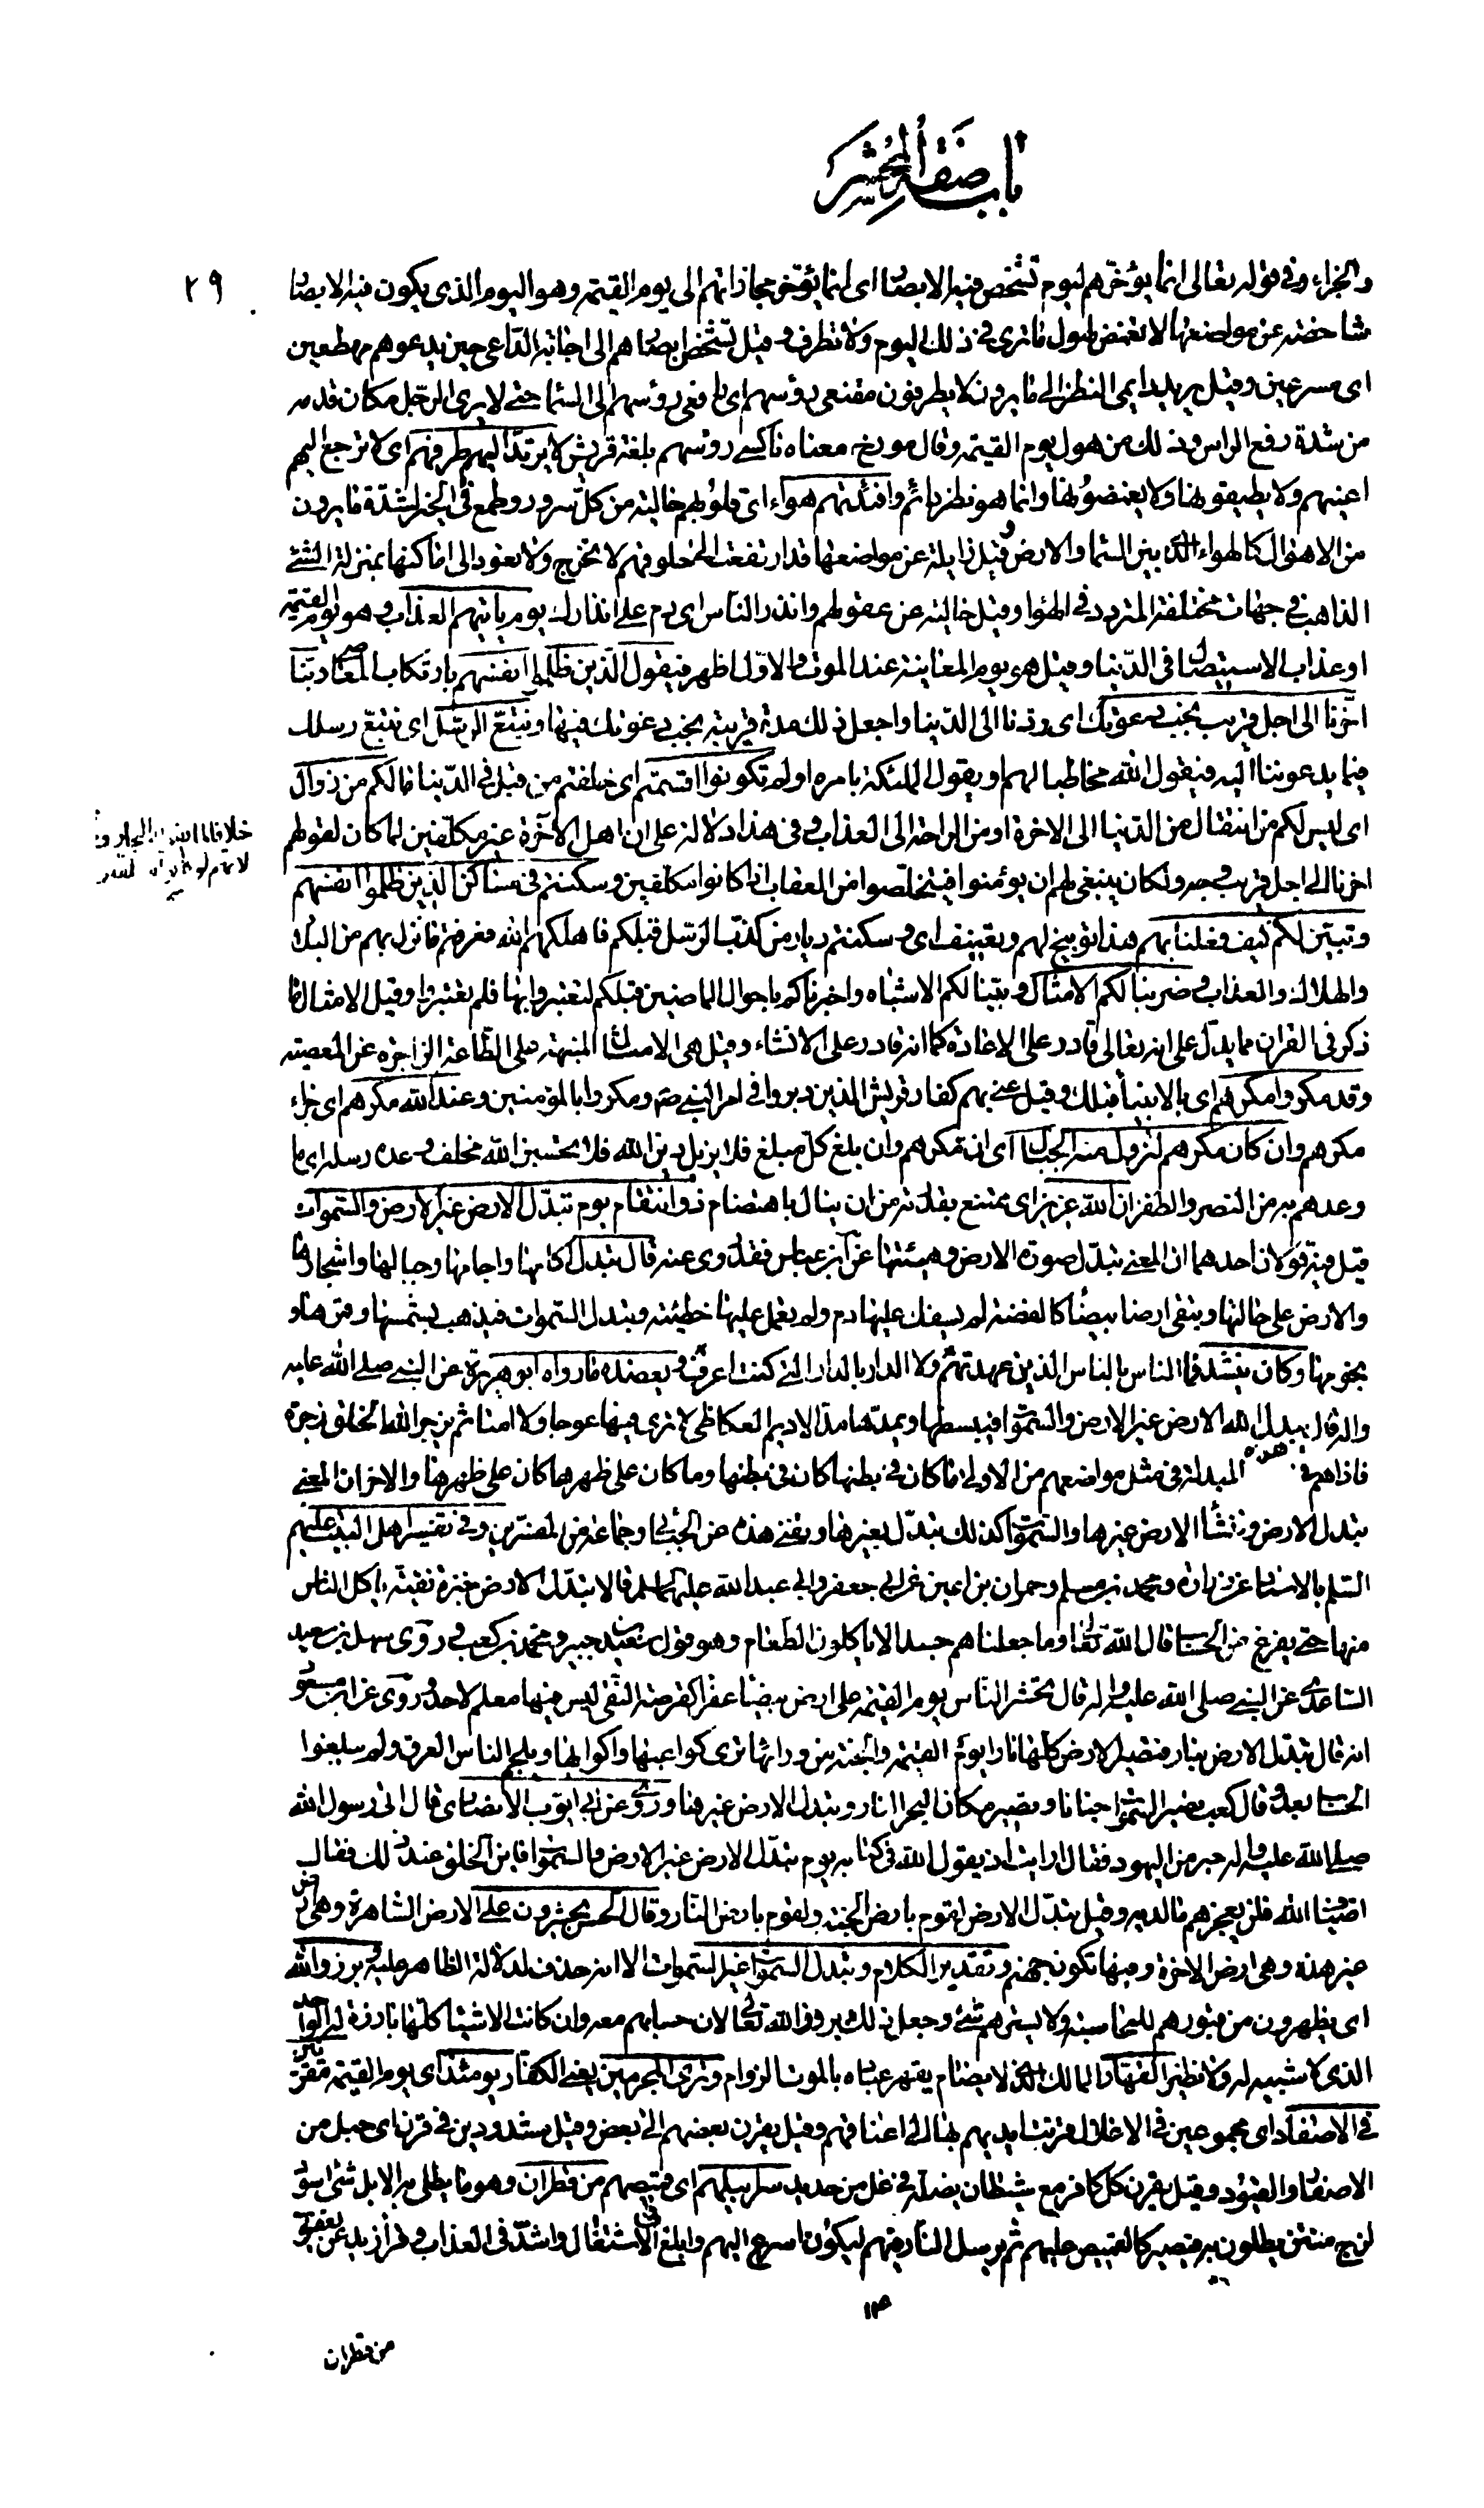 باب صفة المحشر
٢٩
والجزاء وفى قوله تعالى انما يؤخرهم ليوم تشخص فيه الابصار اى انما يؤخر مجازاتهم الى يوم القيمة وهو اليوم الذى يكون فيه الابصار
شاخصة عن مواضعها لا تغمض لهول ما ترى فى ذلك اليوم ولا تطرف وقيل تشخص ابصارهم الى اجابة الداعى حين يدعوهم مهطعين
اى مسرعين وقيل يريد دايمى النظر الى ما يرون لا يطرفون مقنعى رؤسهم اى رافعى رؤسهم الى السماء حتى لا يرى الرجل مكان قدمه
من شدة رفع الراس وذلك من هول يوم القيمة وقال مورج معناه ناكسى رؤسهم بلغة قريش لا يرتد اليهم طرفهم اى لا ترجع اليهم
اعينهم ولا يطبقونها ولا يغمضونها وانما هو نظر دائم وافئدتهم هواء اى قلوبهم خالية من كل سرور وطمع فى الخير لشدة ما يرون
من الاهوال كالهواء الذى بين السماء والارض وقيل زايلة عن مواضعها قد ارتفعت الى حلوقهم لا تخرج ولا تعود الى اماكنها بمنزلة الشئ
الذاهب فى جهات مختلفة المتردد فى الهواء وقيل خالية عن عقولهم وانذر الناس اى دم على انذارك يوم ياتيهم العذاب وهو يوم القيمة
او عذاب الاستيصال فى الدنيا وقيل هو يوم المعاينة عند الموت والاول اظهر فيقول الذين ظلموا انفسهم بارتكاب المعاصى ربنا
اخرنا الى اجل قريب نجب دعوتك اى ردنا الى الدنيا واجعل ذلك مدة قريبة نجب دعوتك فيها ونتبع الرسل اى نتبع رسلك
فيما يدعوننا اليه فيقول الله مخاطبا لهم او يقول الملئكة بامره اولم تكونوا اقسمتم اى حلفتم من قبل فى الدنيا ما لكم من زوال
اى ليس لكم من انتقال من الدنيا الى الاخرة او من الراحة الى العذاب وفى هذا دلالة على ان اهل الآخرة غير مكلفين لما كان لقولهم
خلافا لما النجار و
اخرنا الى اجل قريب وجه ولكان ينبغى لهم ان يؤمنوا فيتخلصوا من العقاب اذا كانوا مكلفين وسكنتم فى مساكن الذين ظلموا انفسهم
وتبين لكم كيف فعلنا بهم هذا توبيخ لهم وتعنيف اى وسكنتم ديار من كذب الرسل قبلكم فاهلكهم الله فعرفتم ما نزل بهم من البلاء
والهلاك والعذاب وضربنا لكم الامثال وبينا لكم الاشباه واخبرناكم باحوال الماضين قبلكم لتعتبروا بها فلم تعتبروا وقيل الامثال ما
ذكر فى القران مما يدل على انه تعالى قادر على الاعادة كما انه قادر على الانشاء وقيل هى الامثال المنبهة على الطاعة الزاجرة عن المعصية
وقد مكروا مكرهم اى بالانبياء قبلك وقيل عنى بهم كفار قريش الذين دبروا فى امر النبى ص ومكروا بالمؤمنين وعند الله مكرهم اى جزاء
مكرهم وان كان مكرهم لتزول منه الجبال اى ان مكرهم وان بلغ كل مبلغ فلا يزيل دين الله فلا تحسبن الله مخلف وعده رسله اى ما
وعدهم به من النصر والظفر ان الله عزيز اى ممتنع بقدرته من ان ينال باهتضام ذو انتقام يوم تبدل الارض غير الارض والسموات
قيل فيه قولان احدهما ان المعنى تبدل صورة الارض وهيئتها عن ابن عباس فقد روى عنه قال تبدل اكامها واجامها وجبالها واشجارها
والارض على حالها وتبقى ارضا بيضاء كالفضة لم يسفك عليها دم ولم يعمل عليها خطيئة وتبدل السموات فيذهب بشمسها وقمرها و
نجومها وكان ينشد فما الناس بالناس الذين عهدتهم ولا الدار بالدار التى كنت اعرف ويعضده ما رواه ابو هريرة عن النبى صلى الله عليه
واله قال يبدل الله الارض غير الارض والسموات فيبسطها ويمدها مد الاديم العكاظى لا ترى فيها عوجا ولا امتا ثم يزجر الله الخلق زجرة
فاذا هم فى هذه المبدلة فى مثل مواضعهم من الاولى ما كان فى بطنها كان فى بطنها وما كان على ظهرها كان على ظهرها والاخر ان المعنى
تبدل الارض وتنشأ الارض غيرها والسموات كذلك تبدل بغيرها وتفنى هذه عن الجبائى وجماعة من المفسرين وفى تفسير اهل البيت عليهم
السلم بالاسناد عن زرارة ومحمد بن مسلم وحمران بن اعين عن ابى جعفر وابى عبد الله عليهما السلم قالا تبدل الارض خبزة نقية ياكل الناس
منها حتى يفرغ من الحساب قال الله تعالى وما جعلناهم جسدا لا ياكلون الطعام وهو قول سعيد بن جبير ومحمد بن كعب وروى سهل بن سعيد
الساعدى عن النبى صلى الله عليه واله قال تحشر الناس يوم القيمة على ارض بيضاء عفراء كقرصة النقى ليس فيها معلم لاحد وروى عن ابن مسعود
انه قال تبدل الارض بنار فتصير الارض كلها نارا يوم القيمة والجنة من ورائها ترى كواعبها واكوابها ويلجم الناس العرق ولم يبلغوا
الحساب بعد وقال كعب تصير السموات جنانا ويصير مكان البحر النار وتبدل الارض غيرها وروى عن ابى ايوب الانصارى قال اتى رسول الله
صلى الله عليه واله حبر من اليهود فقال ارايت اذ يقول الله فى كتابه يوم تبدل الارض غير الارض والسموات فاين الخلق عند ذلك فقال
اضياف الله فلن يعجزهم ما لديه وقيل تبدل الارض لقوم بارض الجنة ولقوم بارض النار وقال الحسن يحشرون على الارض الساهرة وهى ارض
غير هذه وهى ارض الاخرة وفيها تكون جهنم وتقدير الكلام وتبدل السموات غير السموات الا انه حذف لدلالة الظاهر عليه وبرزوا لله
اى يظهرون من قبورهم للمحاسبة ولا يسترهم شئ وجعل ذلك بروزا لله تعالى لان حسابهم معه وان كانت الاشياء كلها بارزة له الواحد
الذى لا شبيه له ولا نظير القهار المالك الذى لا يضام يقهر عباده بالموت الزوام وترى المجرمين يعنى الكفار يومئذ اى يوم القيمة مقرنين
فى الاصفاد اى مجموعين فى الاغلال قرنت ايديهم بها الى اعناقهم وقيل يقرن بعضهم الى بعض وقيل مشدودين فى قرن اى حبل من
الاصفاد والقيود وقيل يقرن كل كافر مع شيطان يضله فى غل من حديد سرابيلهم اى قميصهم من قطران وهو ما يطلى به الابل شئ اسود
لزج منتن يطلون به فيصير كالقميص عليهم ثم يرسل النار فيهم ليكون اسرع اليهم وابلغ فى الاشتعال واشد فى العذاب
من قطران